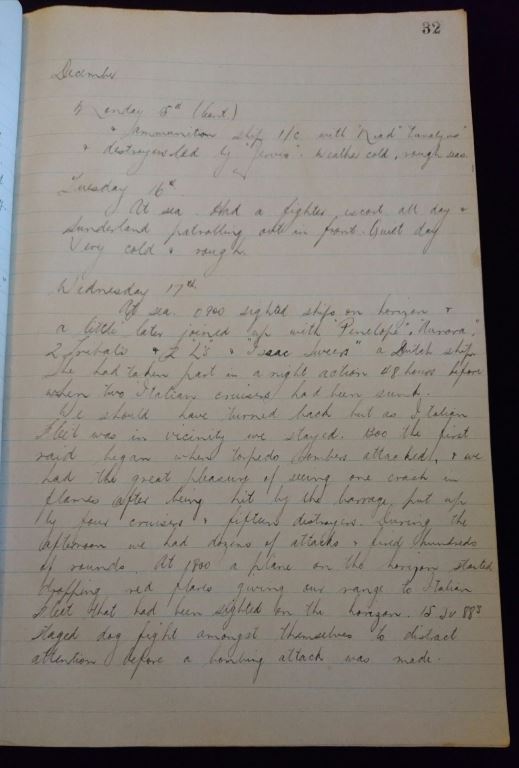 32
December
Monday 15th (Cont)
" Ammunition ship i/c with "Naiad" "Euryalus"
& destroyers led by "Jervis". Weather cold, rough seas.
Tuesday 16th
At sea. Had a fighter escort all day &
Sunderland patrolling out in front. Quiet day
Very cold & rough.
Wednesday 17th
At sea. 0900 sighted ships on horizon &
a little later joined up with "Penelope", "Aurora",
2 Tribals & 2 "L's" & "Isaac Sweers" a Dutch ship.
She had taken part in a night action 48 hours before
when two Italian cruisers had been sunk.
We should have turned back but as Italian
Fleet was in vicinity we stayed. 1300 the first
raid began when torpedo bombers attacked, & we
had the great pleasure of seeing one crash in
flames after being hit by the barrage put up
by four cruisers & fifteen destroyers. During the
afternoon we had dozens of attacks & fired hundreds
of rounds. At 1800 a plane on the horizon started
dropping red flares giving our range to Italian
Fleet that had been sighted on the horizon. 15 JU 88s
staged dog fight amongst themselves to distract
attention before a bombing attack was made.